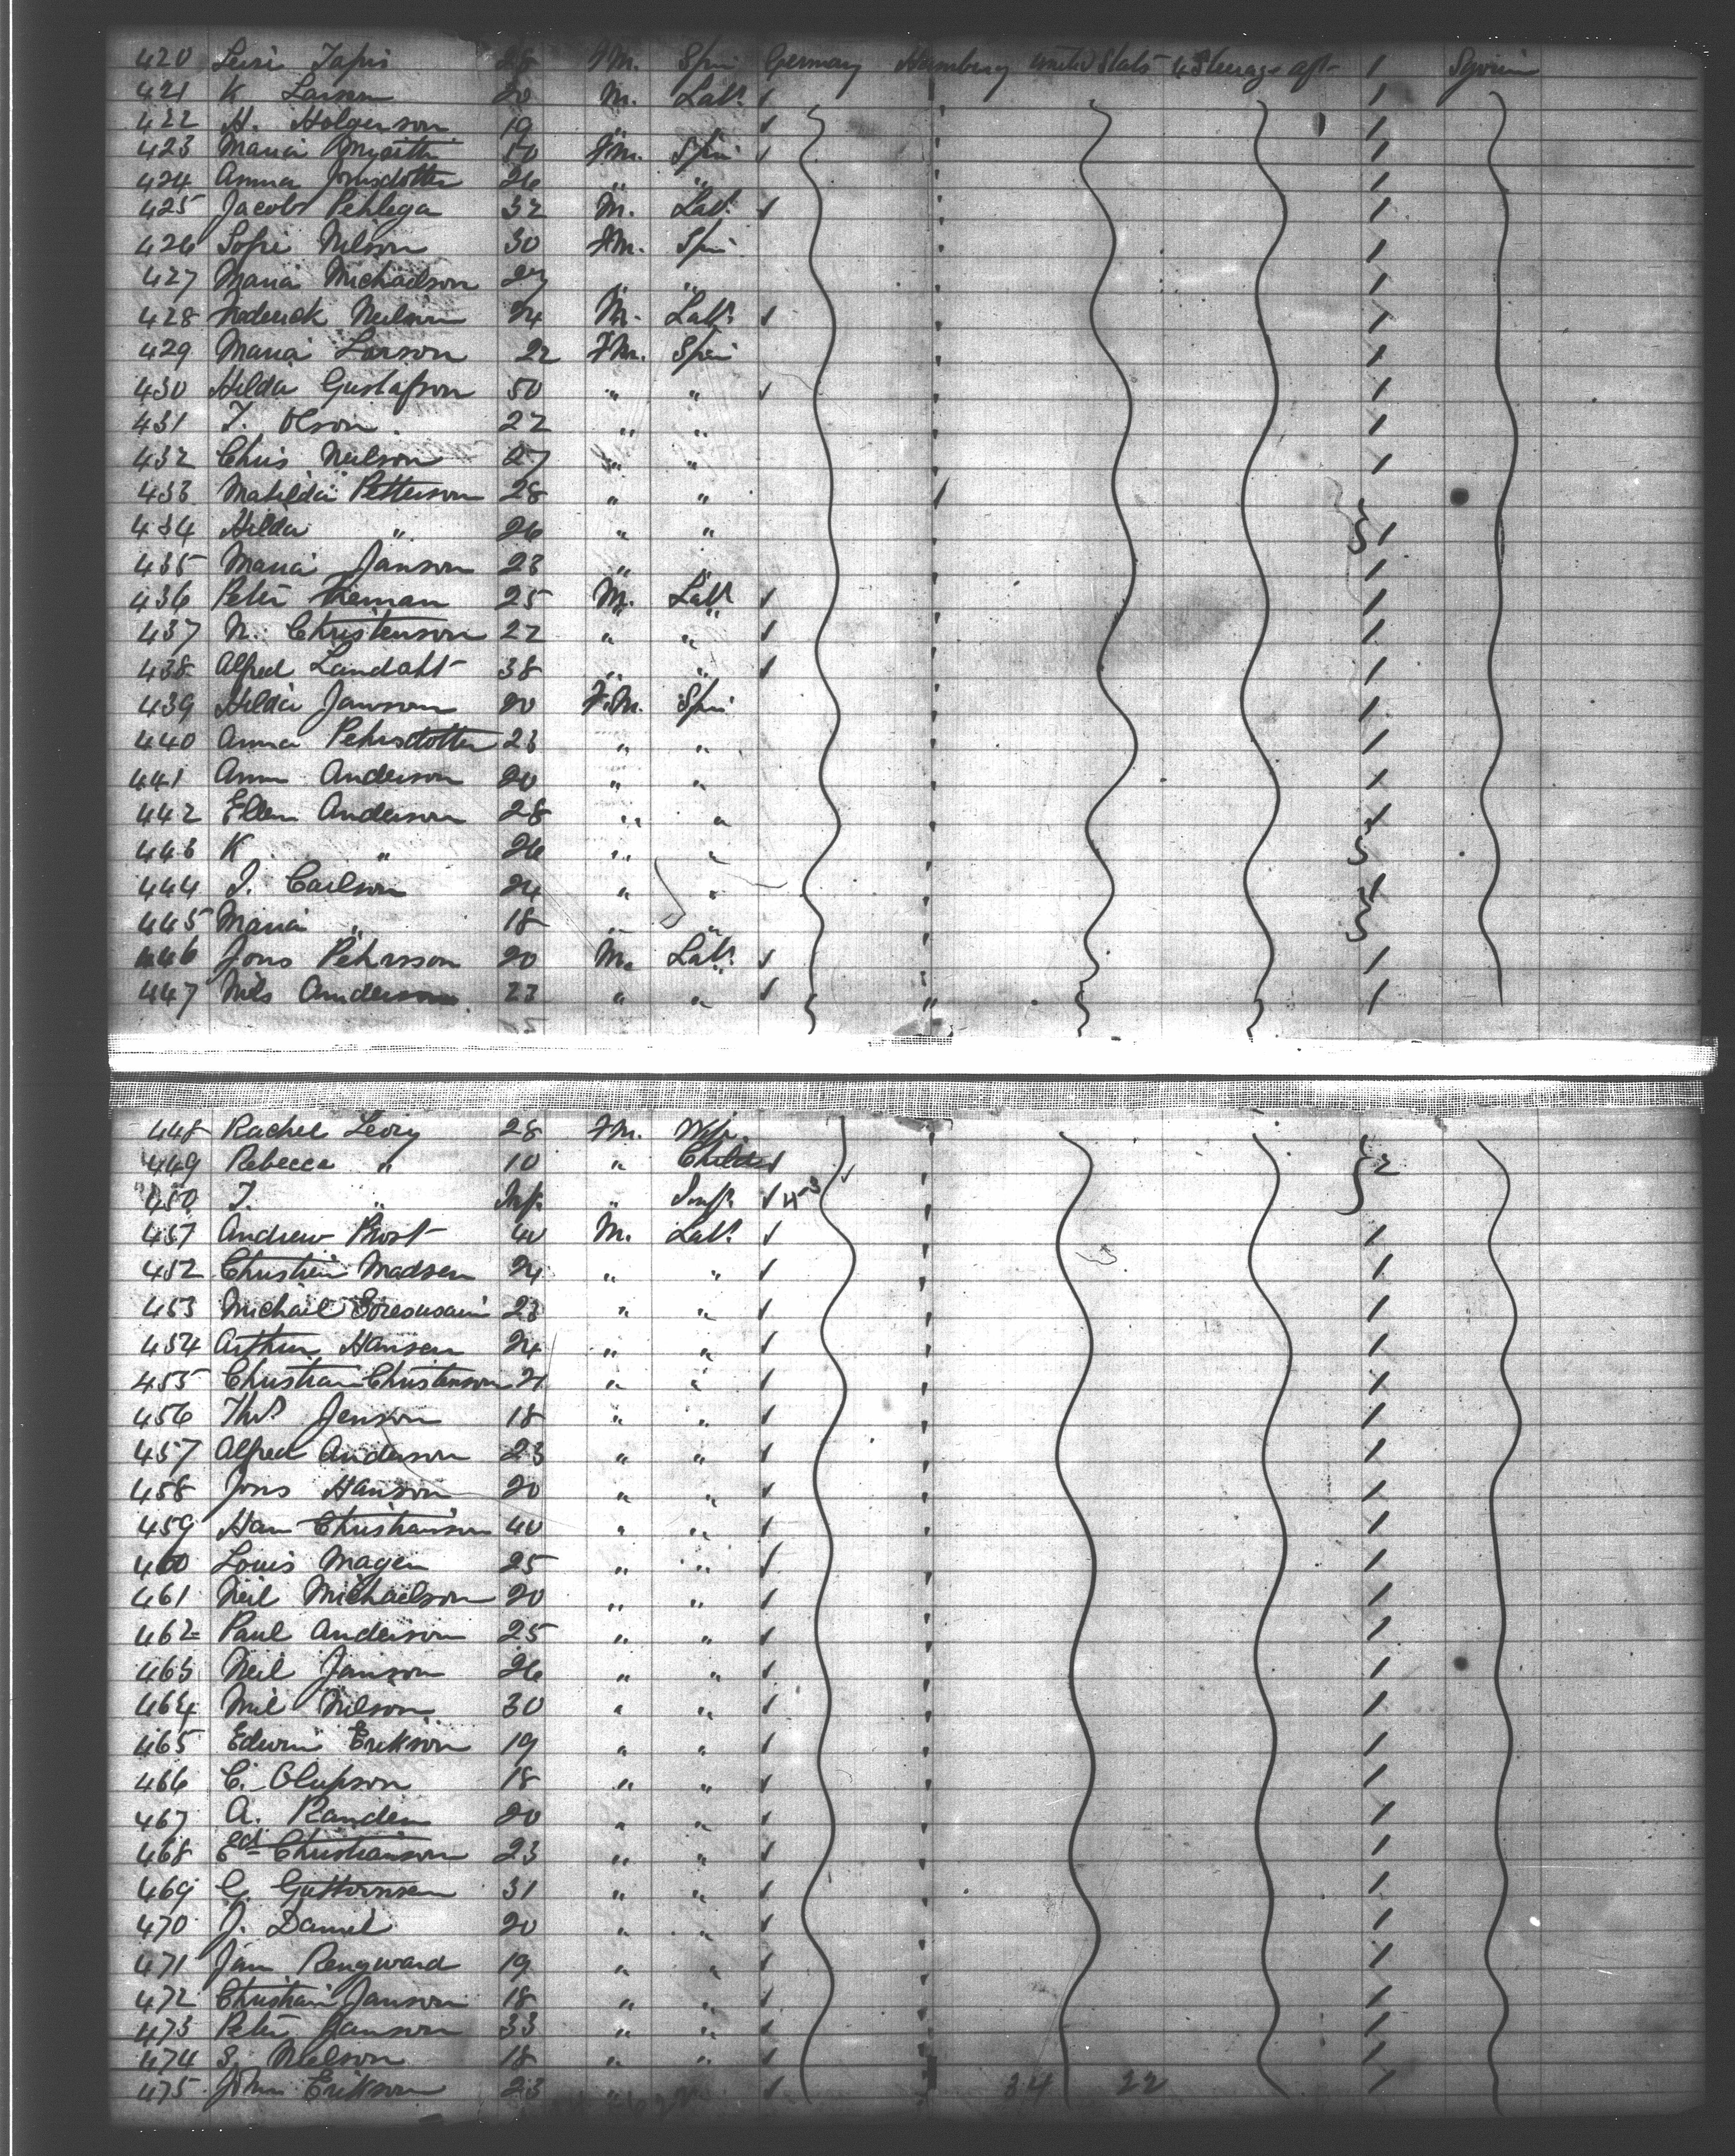 420 Levi 28 Fm. Spin Germany Hamburg United States 4 Steerage aft 1
421 K Larson 20 M. Labr 1
422 H. Holgerson 19 " 1
423 Maria 50 Fm. Spin 1
424 Anna Jonsdotter 26 " " 1
425 Jacob 32 M. Labr 1
426 Sofie Nilson 30 Fm. Spin 1
427 Maria Michaelson 27 " " 1
428 Frederick Neilson 24 M. Labr 1
429 Maria Larson 22 Fm. Spin 1
430 Hilda Gustafson 50 " " 1
431 T. Olson 22 " " 1
432 Chris Neilson 27 " " 1
433 Matilda Petterson 28 " "
434 Hilda " 26 " " 1
435 Maria Janson 23 " " 1
436 Peter 25 M. Labr 1
437 N. Christenson 22 " " 1
438 Alfred Landahl 38 " " 1
439 Hilda Janson 20 Fm. Spin 1
440 Anna Pehrsdotter 23 " " 1
441 Ann Anderson 20 " " 1
442 Ellen Anderson 28 " " 1
443 K " 26 " "
444 J. Carlson 24 " " 1
445 Maria " 18 " "
446 Jons Pehrsson 20 M. Labr 1
447 Nils Anderson 23 " " " 1
448 Rachel Levy 28 Fm. Wife
449 Rebecca " 10 " Child 2
450 T. " Inf. " Inf.
451 Andrew Prost 40 M. Labr 1
452 Christien Madsen 24 " " 1
453 Michael 23 " " 1
454 Arthur Hansen 24 " " 1
455 Christian Christenson 21 " " 1
456 Thos Jenson 18 " " 1
457 Alfred Anderson 23 " " 1
458 Jons Hanson 20 " " 1
459 Han Christianson 40 " " 1
460 Louis Magen 25 " " 1
461 Neil Michaelson 20 " " 1
462 Paul Anderson 25 " " 1
463 Neil Janson 26 " " 1
464 Neil Nilson 30 " " 1
465 Edwin Erikson 19 " " 1
466 C. Olufson 18 " " 1
467 A. Randen 20 " " 1
468 Ed Christianson 23 " " 1
469 G. Guttormsen 31 " " 1
470 J. Daniel 20 " " 1
471 Jan Rengward 19 " " 1
472 Christian Janson 18 " " 1
473 Peter Janson 33 " " 1
474 S. Nielson 18 " " 1
475 John Erikson 23 " " 34 22 1